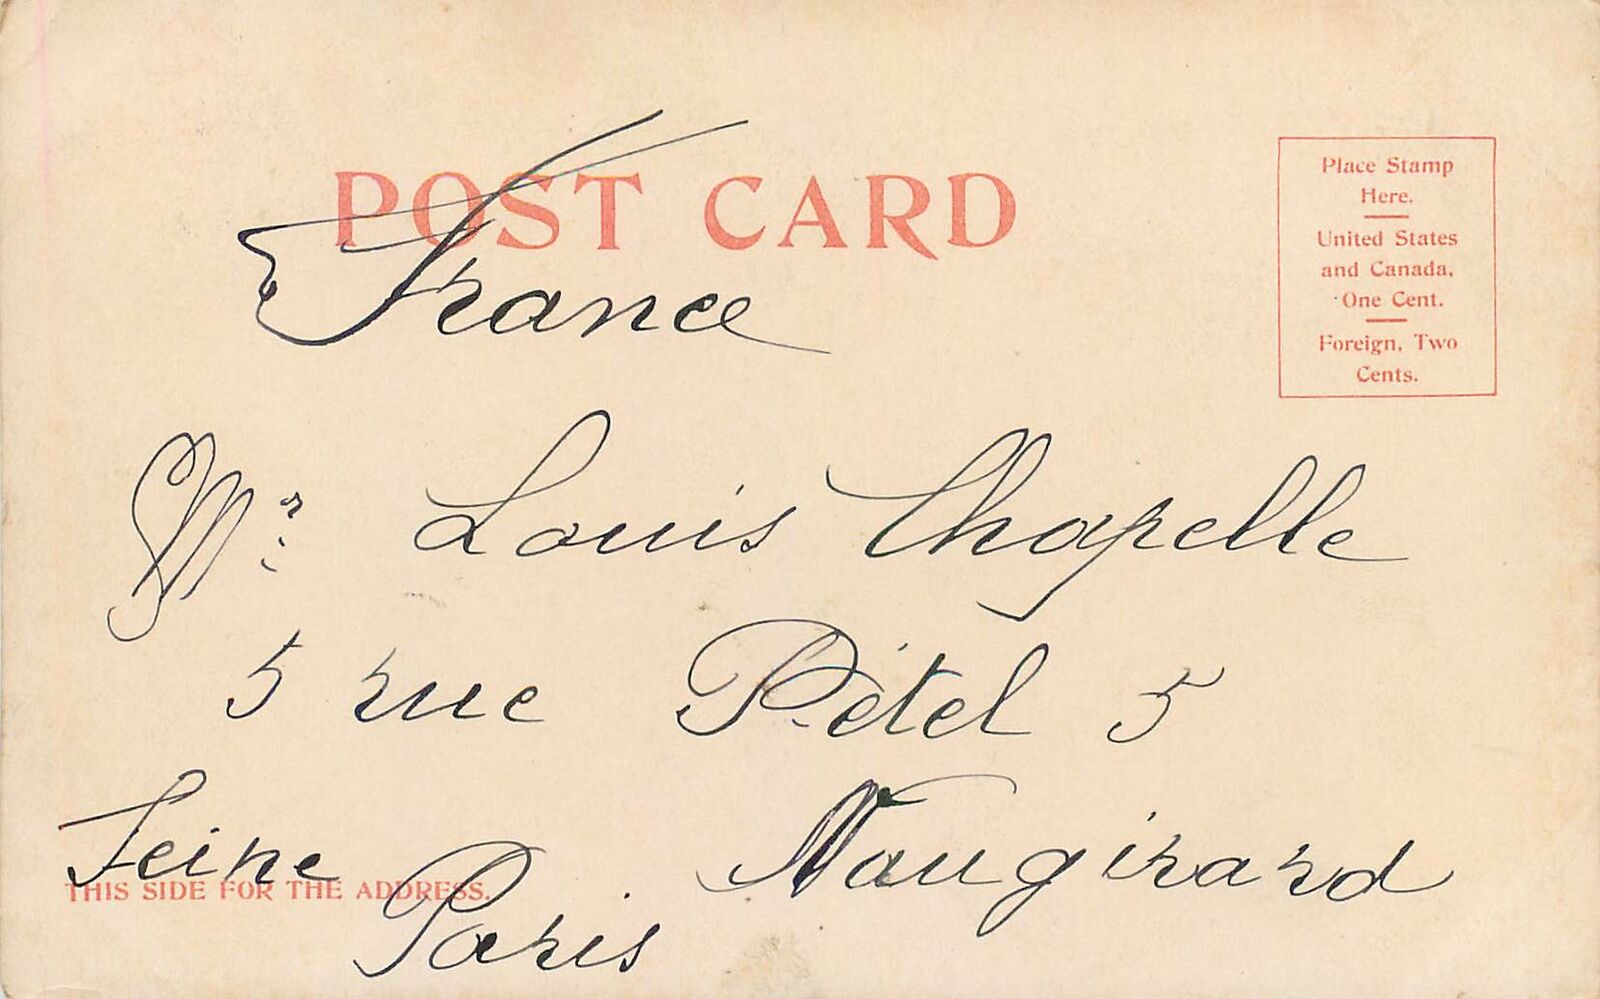 POST CARD
Place Stamp
Here.
United States
and Canada,
One Cent.
Foreign, Two
Cents.
France
Mr. Louis Chapelle
5 rue Pétel 5
Seine Vaugirard
THIS SIDE FOR THE ADDRESS.
Paris